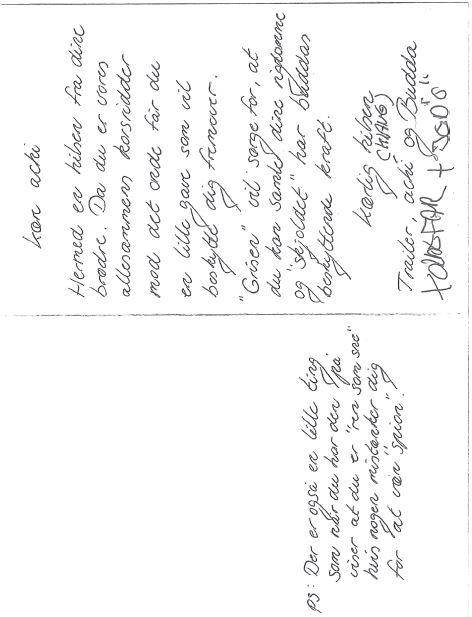 kære achi
Hermed en hilsen fra dine
brødre. Da du er vores
allesammens korsridder
mod det onde får du
en lille gave som vil
beskytte dig fremover.
"Grisen" vil sørge for, at
du kan samle dine rigdomme
og "skjoldet" har buddas
beskyttende kraft.
kærlig hilsen
Trailer, achi og Budda
PS: Der er også en lille ting
som når du har den på
viser at du er "ren som sne"
hvis nogen mistænker dig
for "at vær' spion".